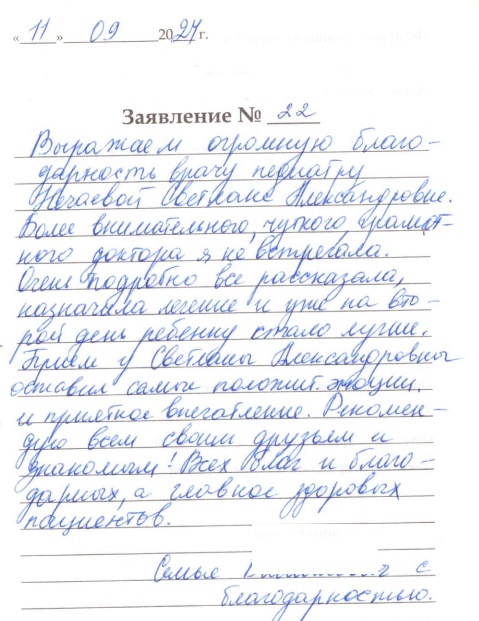 «11» 09 2024 г.
Заявление № 22
Выражаем огромную благо-
дарность врачу педиатру
Нечаевой Светлане Александровне.
Более внимательного, чуткого, грамот-
ного доктора я не встречала.
Очень подробно все рассказала,
назначила лечение и уже на вто-
рой день ребенку стало лучше.
Прием у Светланы Александровны
оставил самые положит. эмоции
и приятное впечатление. Рекомен-
дую всем своим друзьям и
знакомым! Всех благ и благо-
дарных, а главное здоровых
пациентов.
Семья с
благодарностью.